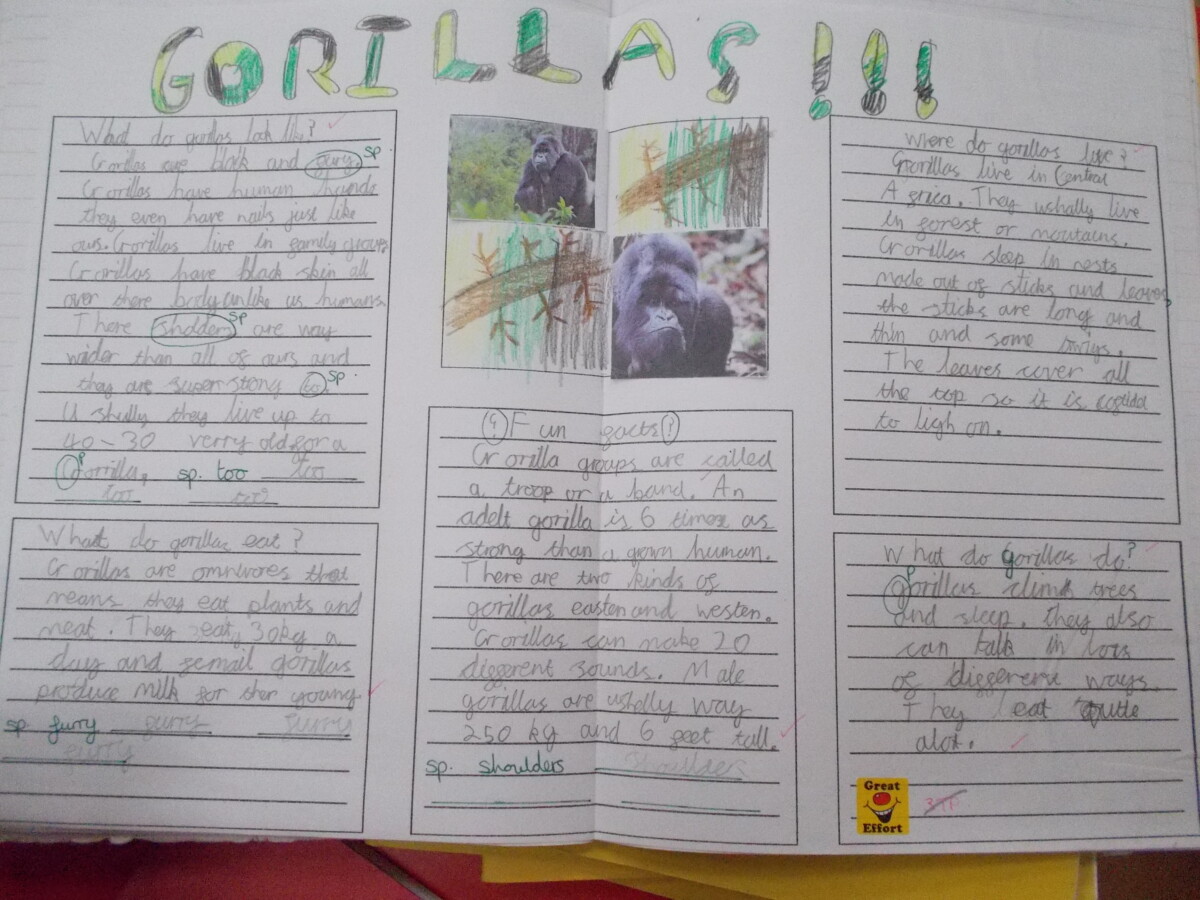 GORILLAS!!!
What do gorillas look like?
Gorillas are black and furry. sp
Gorillas have human hands
they even have nails just like
ours. Gorillas live in family groups
Gorillas have black skin all
over there body unlike us humans.
There shodders sp are way
wider than all of ours and
they are super strong to sp.
Ushully they live up to
40-30 verry old for a
Gorrilla, sp. too too
too too
What do gorillas eat?
Gorillas are omnivores that
means they eat plants and
meat. They eat 30kg a
day and femail gorillas
produce milk for ther young
sp furry furry furry
furry
Fun facts!
Gorilla groups are called
a troop or a band. An
adelt gorilla is 6 times as
strong than a grown human.
There are two kinds of
gorillas easten and westen.
Gorillas can make 20
different sounds. Male
gorillas are ushally way
250 kg and 6 feet tall.
sp. shoulders shoulders
where do gorillas live?
Gorillas live in Central
Africa. They ushally live
in forest or moutains.
Gorillas sleep in nests
made out of sticks and leaves,
the sticks are long and
thin and some twigs.
The leaves cover all
the top so it is
to ligh on.
What do gorillas do?
gorillas climb trees
and sleep. they also
can talk in lots
of different ways.
They eat quite
alot.
Great
Effort